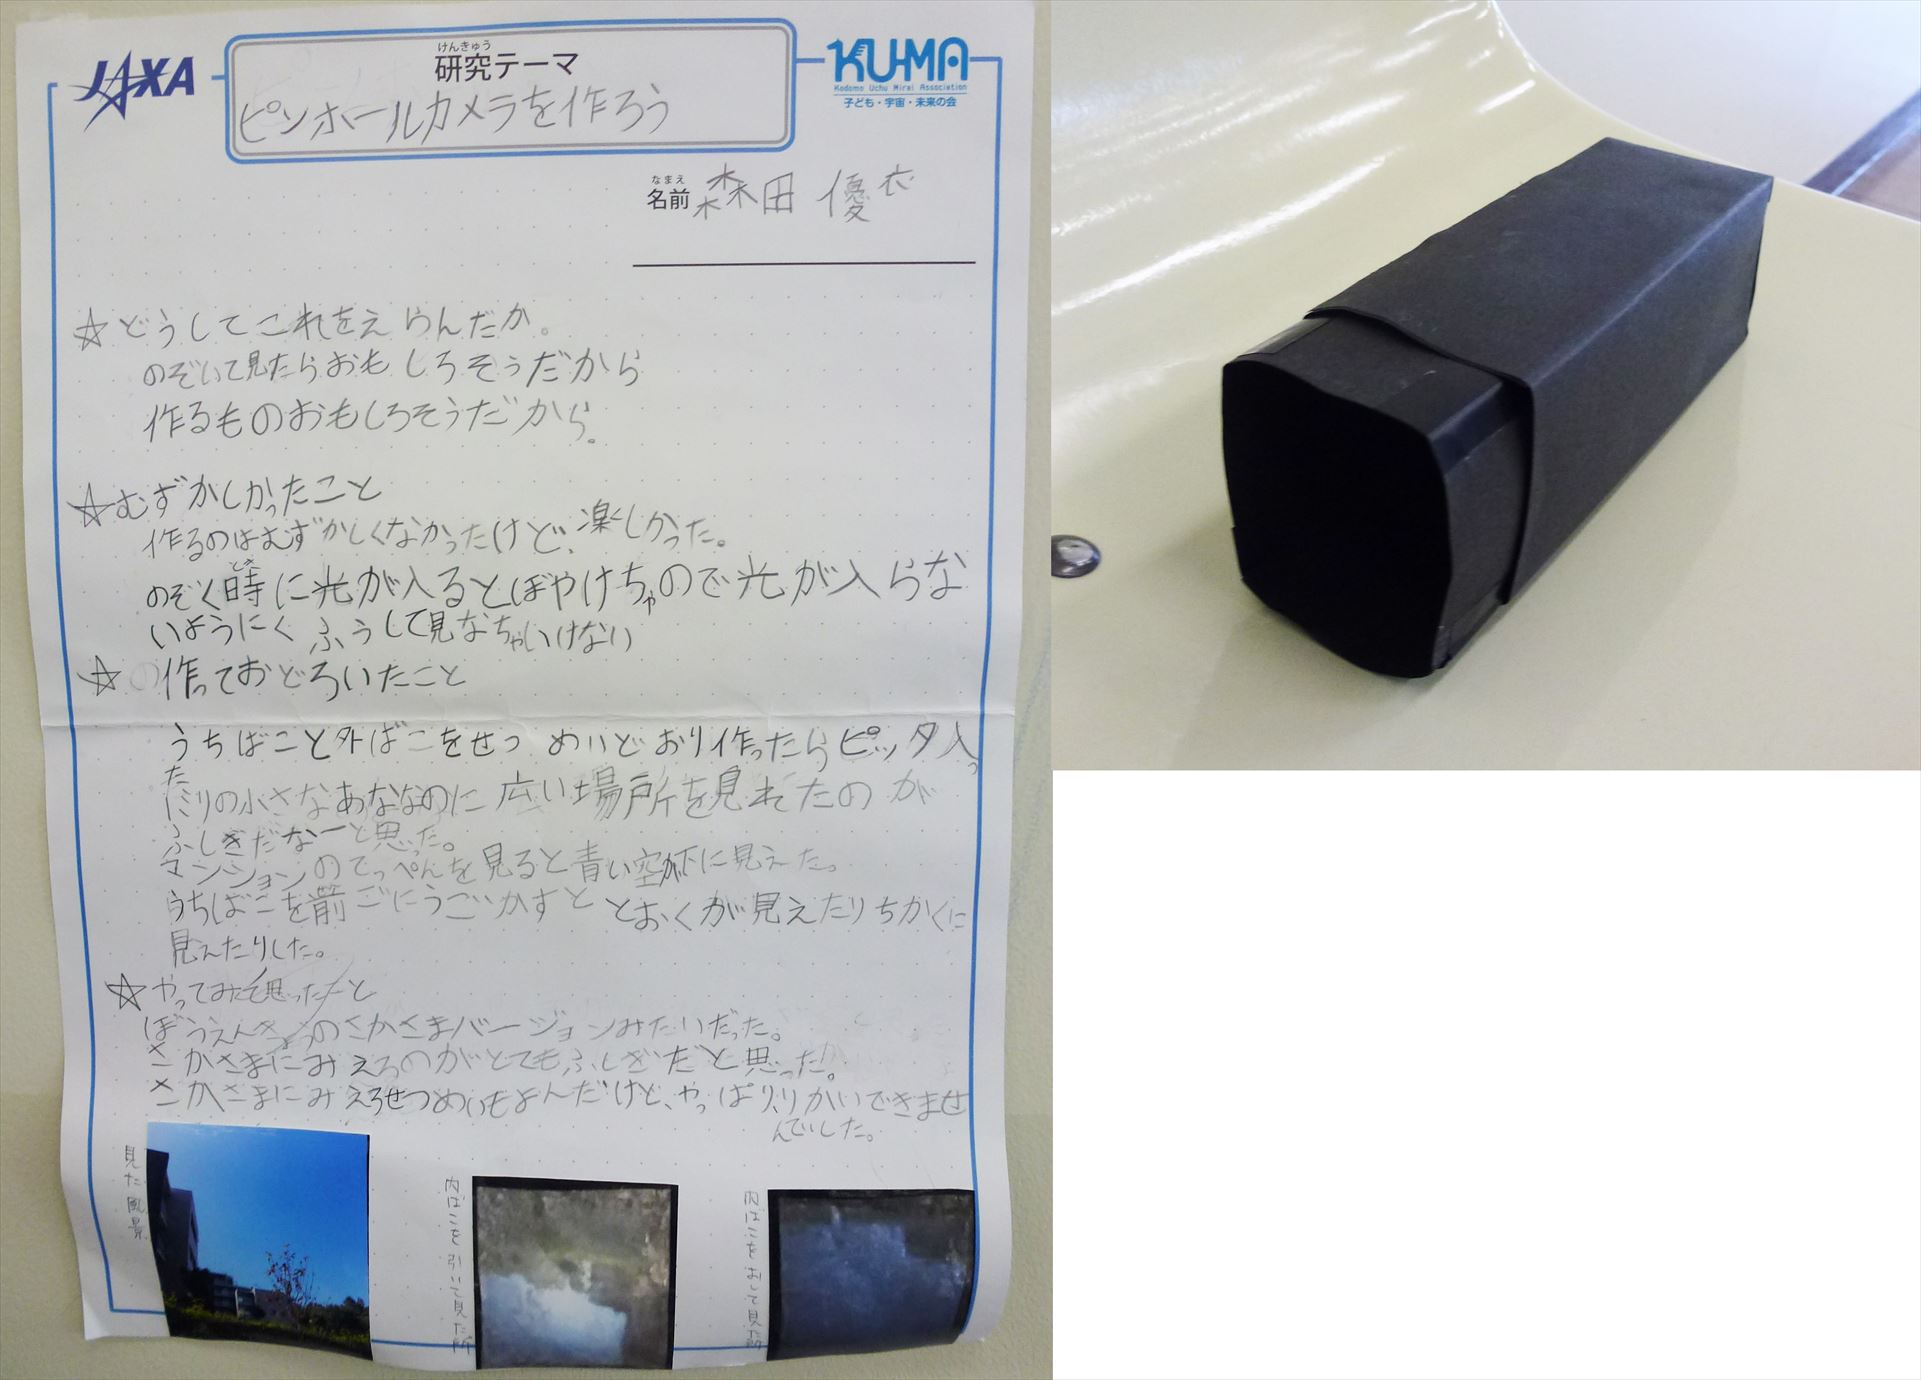 JAXA
けんきゅう
研究テーマ
ピンホールカメラを作ろう
KU-MA
Kodomo Uchu Mirai Association
子ども・宇宙・未来の会
なまえ
名前 森田 優衣
☆どうしてこれをえらんだか。
のぞいて見たらおもしろそうだから
作るものおもしろそうだから。
☆むずかしかったこと
作るのはむずかしくなかったけど、楽しかった。
のぞく時に光が入るとぼやけちゃので光が入らな
いようにくふうして見なちゃいけない
☆作っておどろいたこと
うちばこと外ばこをせつめいどおり作ったらピッタ入っ
た
はりの小さなあななのに広い場所を見れたのが
ふしぎだなーと思った。
マンションのてっぺんを見ると青い空が下に見えた。
うちばこを前ごにうごかすととおくが見えたりちかくに
見えたりした。
☆やってみて思ったこと
ぼうえんきょうのさかさまバージョンみたいだった。
さかさまにみえるのがとてもふしぎだと思った。
さかさまにみえるせつめいもよんだけど、やっぱりりかいできませ
んでした。
見た風景
内ばこを引いて見た所
内ばこをおして見た所